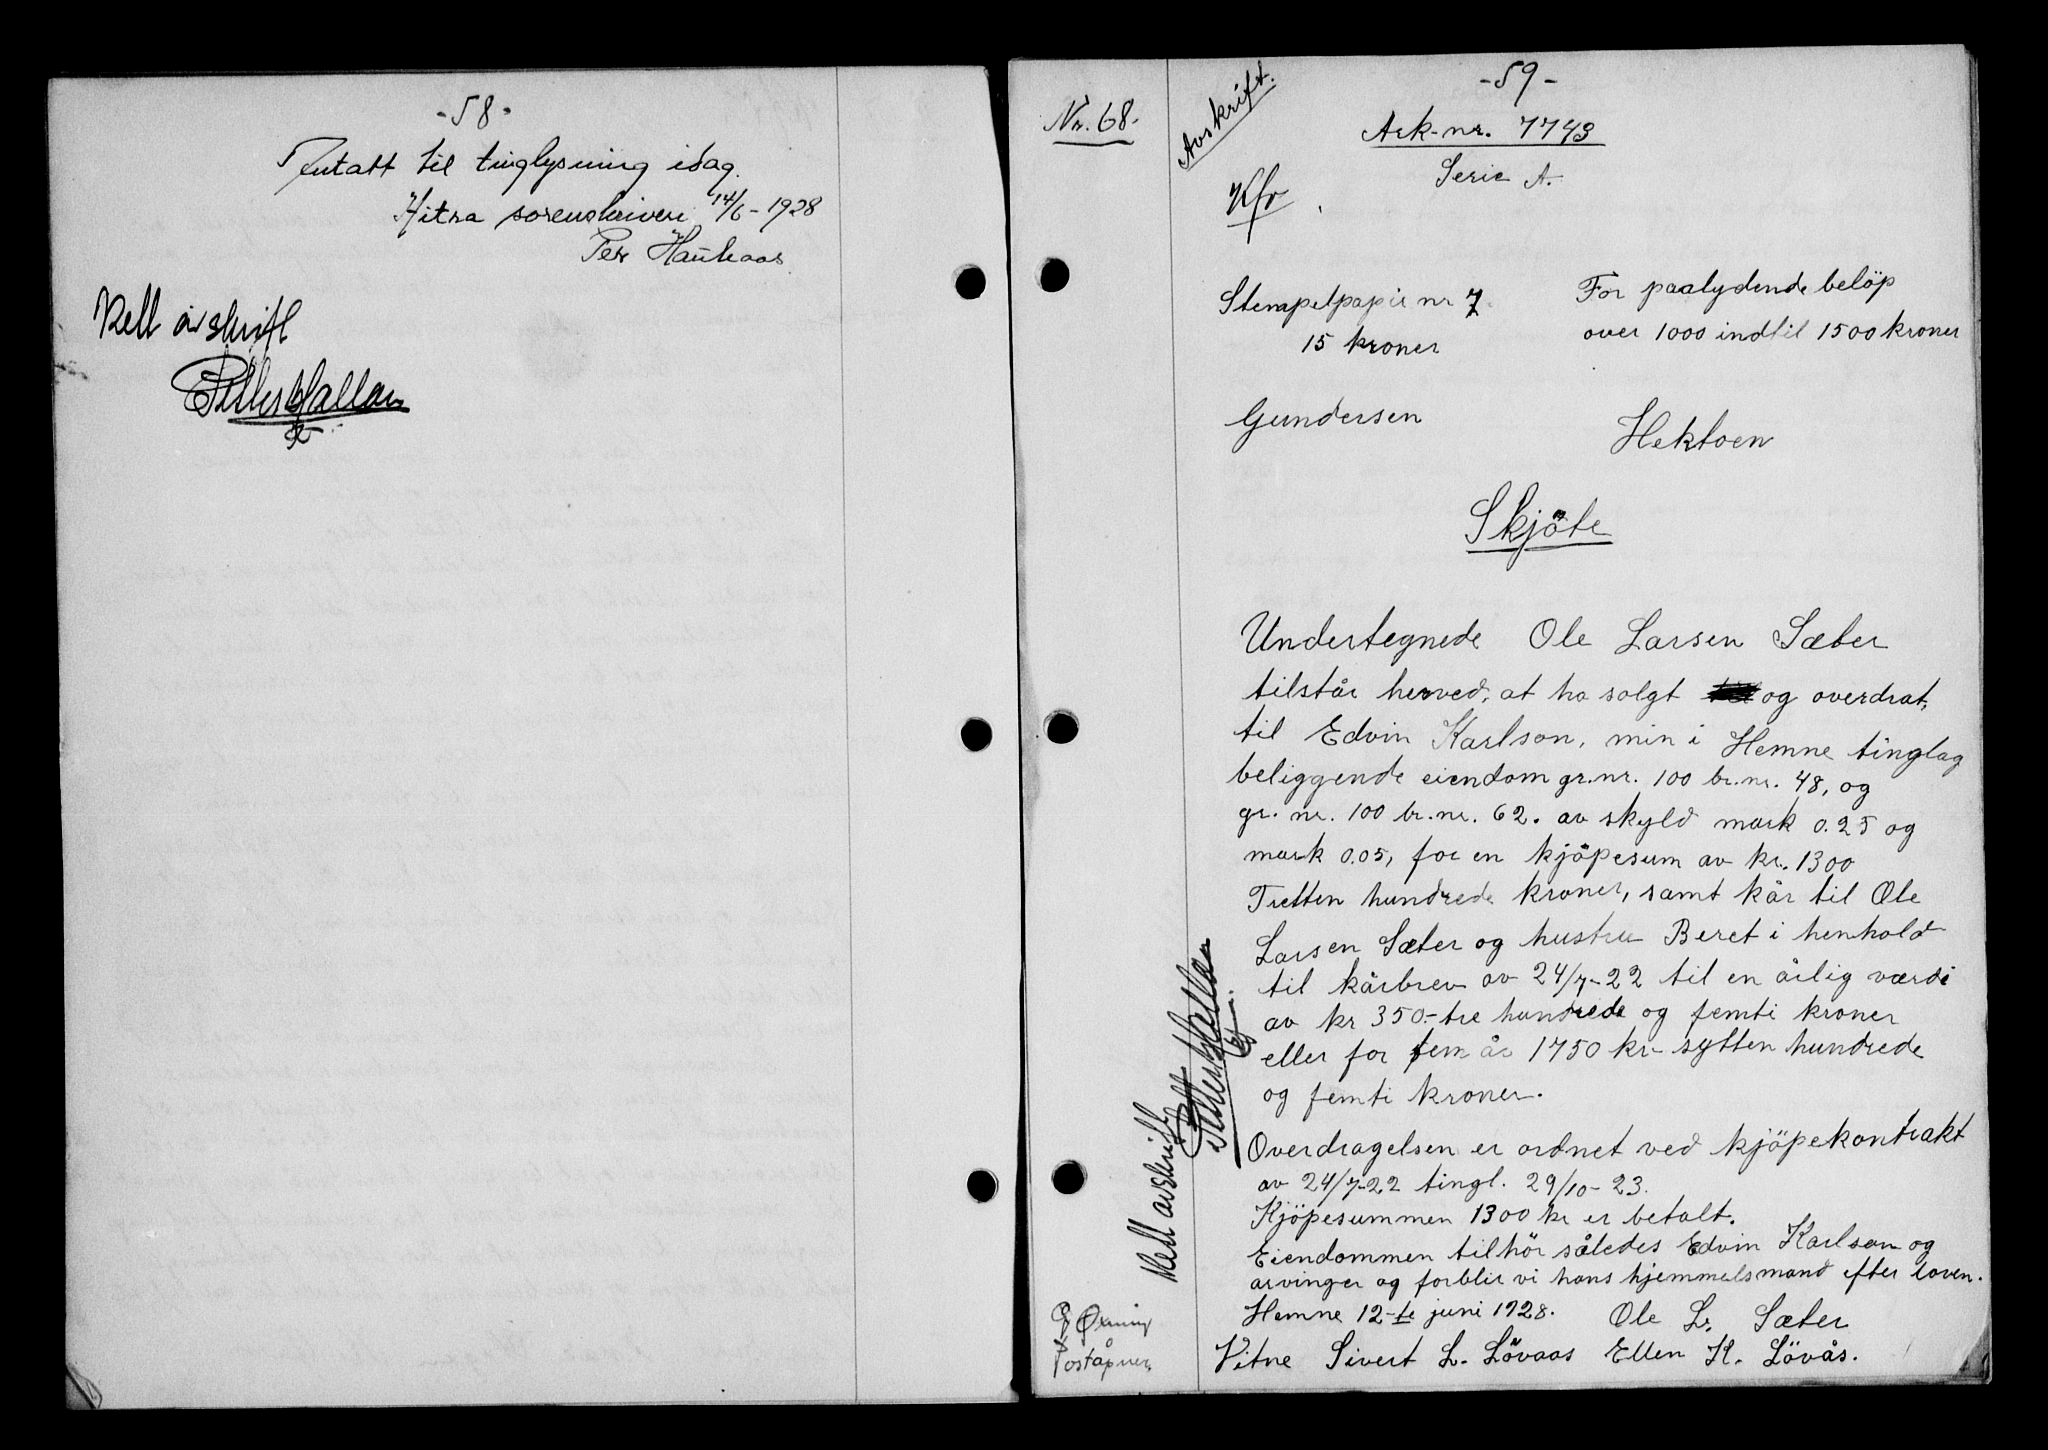 - 58 -
Antatt til tinglysning idag.
Hitra sorenskriveri 14/6 - 1928
Per Haukaas
Rett avskrift
Petter Hallan
- 59 -
Nr. 68.
Avskrift.
Ark-nr. 7743
Serie A.
Kfr
Stempelpapir nr 7.
15 kroner
For paalydende beløp
over 1000 indtil 1500 kroner
Gundersen
Hektoen
Skjöte
Undertegnede Ole Larsen Sæter
tilstår herved, at ha solgt og overdrat,
til Edvin Karlson, min i Hemne tinglag
beliggende eiendom gr.nr. 100 br.nr. 48, og
gr. nr. 100 br.nr. 62. av skyld mark 0.25 og
mark 0.05, for en kjöpesum av kr. 1300
Tretten hundrede kroner, samt kår til Ole
Larsen Sæter og hustru Beret i henhold
til kårbrev av 24/7-22 til en årlig værdi
av kr 350.- tre hundrede og femti kroner
eller for fem år 1750 kr- sytten hundrede
og femti kroner.
Overdragelsen er ordnet ved kjöpekontrakt
av 24/7-22 tingl. 29/10-23.
Kjöpesummen 1300 kr er betalt.
Eiendommen tilhör således Edvin Karlson og
arvinger og forblir vi hans hjemmelsmand efter loven.
Hemne 12-te juni 1928. Ole L. Sæter
Vitne Sivert L. Lövaas Ellen K. Lövås.
Rett avskrift
Petter Hallan
Øxning
Poståpner.